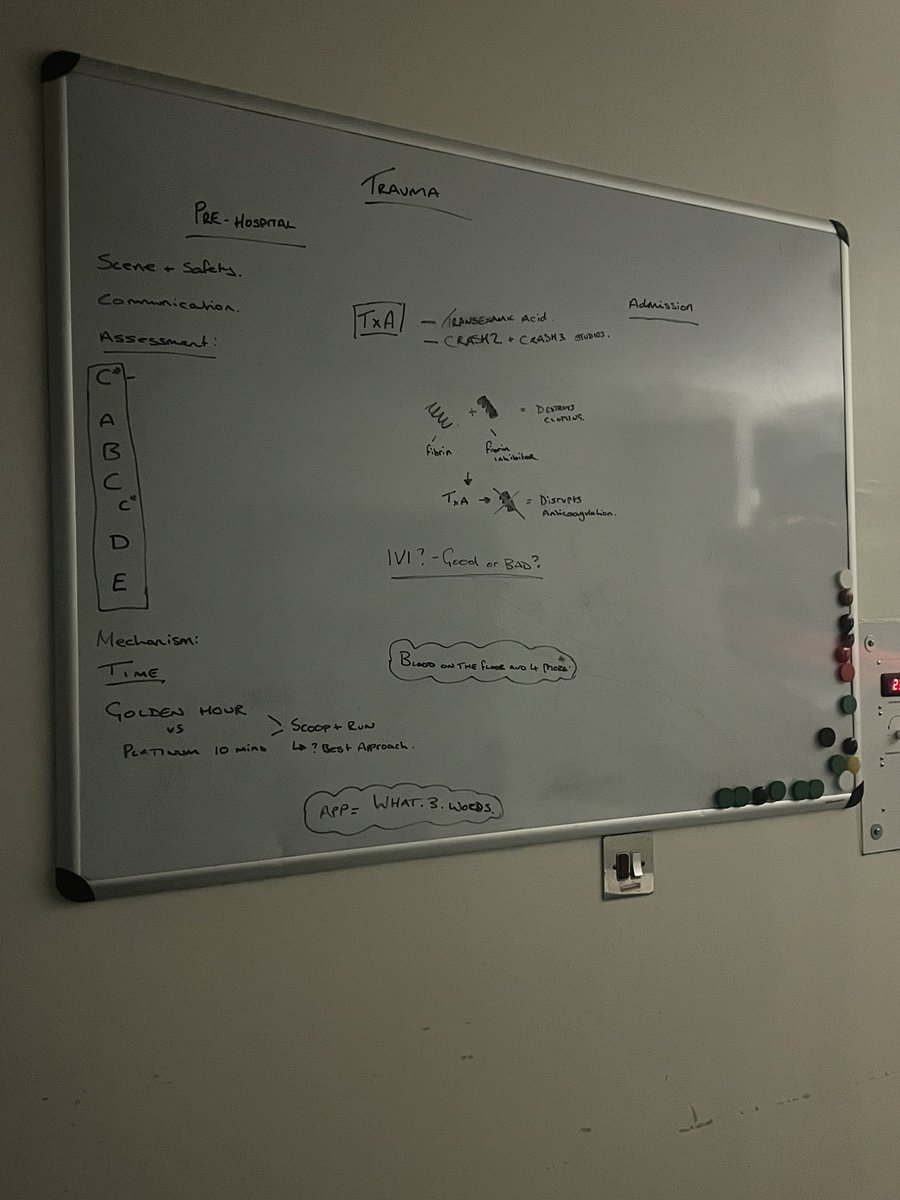 TRAUMA
PRE-HOSPITAL
Scene + Safety.
Communication.
Assessment:
C*-
A
B
C
C*
D
E
Mechanism:
TIME
GOLDEN HOUR
VS
PLATINUM 10 MINS
SCOOP + RUN
↳ ? BEST APPROACH.
APP = WHAT.3.WORDS.
TxA
— TRANEXAMIC ACID.
— CRASH2 + CRASH3 STUDIES.
+ = DESTROYS
CLOTTING.
fibrin
fibrin
inhibitor.
↓
TxA → = DISRUPTS
Anticoagulation.
IVI? - Good or BAD?
BLOOD ON THE FLOOR AND 4 MORE*
Admission